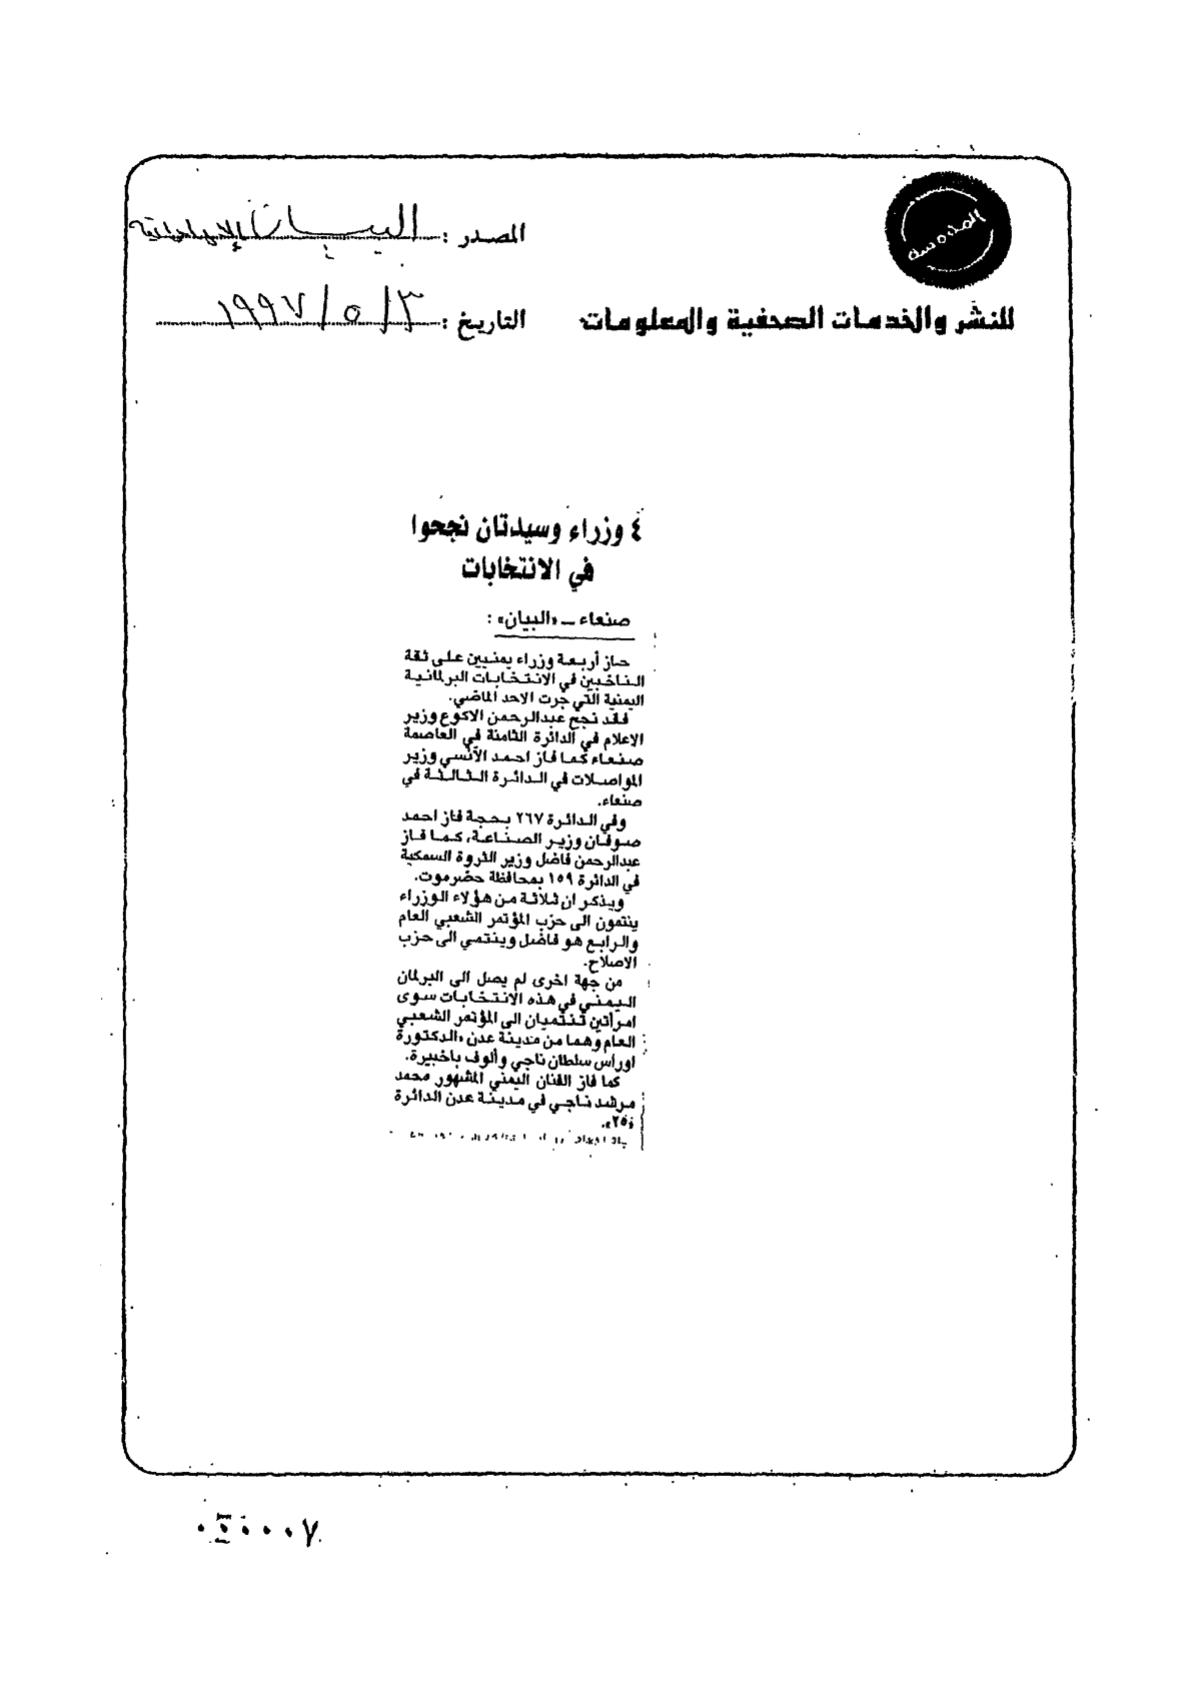 المصدر : البيان الإماراتية
للنشر والخدمات الصحفية والمعلومات
التاريخ : ٣/٥/١٩٩٧
٤ وزراء وسيدتان نجحوا
في الانتخابات
صنعاء ــ «البيان» :
حاز أربعة وزراء يمنيين على ثقة
الناخبين في الانتخابات البرلمانية
اليمنية التي جرت الاحد الماضي.
فقد نجح عبدالرحمن الاكوع وزير
الاعلام في الدائرة الثامنة في العاصمة
صنعاء كما فاز احمد الآنسي وزير
المواصلات في الدائرة الثالثة في
صنعاء.
وفي الدائرة ٢٦٧ بحجة فاز احمد
صوفان وزير الصناعة، كما فاز
عبدالرحمن فاضل وزير الثروة السمكية
في الدائرة ١٥٩ بمحافظة حضرموت.
ويذكر ان ثلاثة من هؤلاء الوزراء
ينتمون الى حزب المؤتمر الشعبي العام
والرابع هو فاضل وينتمي الى حزب
الاصلاح.
من جهة اخرى لم يصل الى البرلمان
اليمني في هذه الانتخابات سوى
امرأتين تنتميان الى المؤتمر الشعبي
العام وهما من مدينة عدن «الدكتورة
اوراس سلطان ناجي وألوف باخبيرة.
كما فاز الفنان اليمني المشهور محمد
مرشد ناجي في مدينة عدن الدائرة
«٢٥».